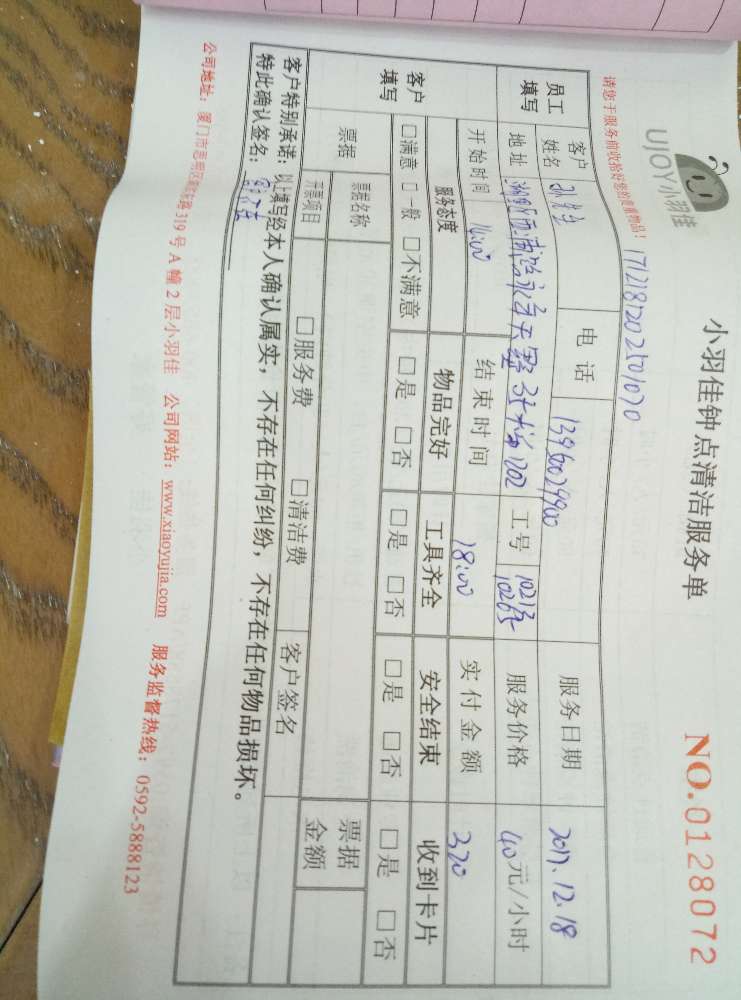 UJOY小羽佳
小羽佳钟点清洁服务单
NO.0128072
请您于服务前收拾好您的贵重物品！
171218120250101070
员工填写
客户姓名 孙先生 电话 13960029900 服务日期 2017.12.18
地址 3栋 1202 工号 10213 10265 服务价格 40元/小时
开始时间 14:00 结束时间 18:00 实付金额 320
客户填写
服务态度 物品完好 工具齐全 安全结束 收到卡片
□满意 □一般 □不满意 □是 □否 □是 □否 □是 □否 □是 □否
票据 票据名称 票据金额
开票项目 □服务费 □清洁费 客户签名
客户特别承诺：以上填写经本人确认属实，不存在任何纠纷，不存在任何物品损坏。
特此确认签名：
公司地址：厦门市思明区 路319号A幢2层小羽佳 公司网站：www.xiaoyujia.com 服务监督热线：0592-5888123